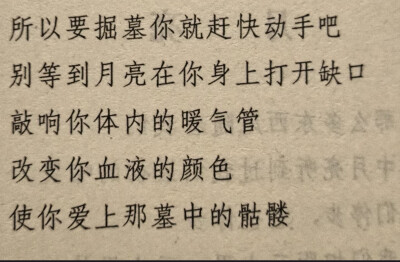 所以要掘墓你就赶快动手吧
别等到月亮在你身上打开缺口
敲响你体内的暖气管
改变你血液的颜色
使你爱上那墓中的骷髅